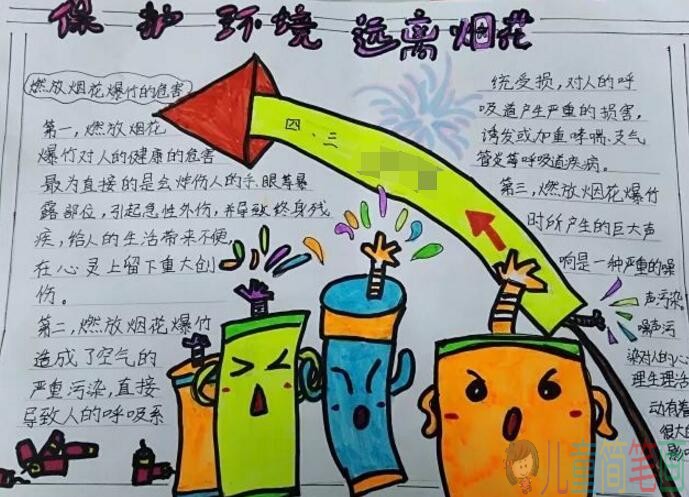 保护环境 远离烟花
燃放烟花爆竹的危害
第一，燃放烟花
爆竹对人的健康的危害
最为直接的是会炸伤人的手、眼等暴
露部位，引起急性外伤，并导致终身残
疾，给人的生活带来不便，
在心灵上留下重大创
伤。
第二，燃放烟花爆竹
造成了空气的
严重污染，直接
导致人的呼吸系
四、三
统受损，对人的呼
吸道产生严重的损害，
诱发或加重哮喘、支气
管炎等呼吸道疾病。
第三，燃放烟花爆竹
时所产生的巨大声
响是一种严重的噪
声污染。
噪声污
染对人的心
理生理活
动有着
很大的
影响
儿童简笔画